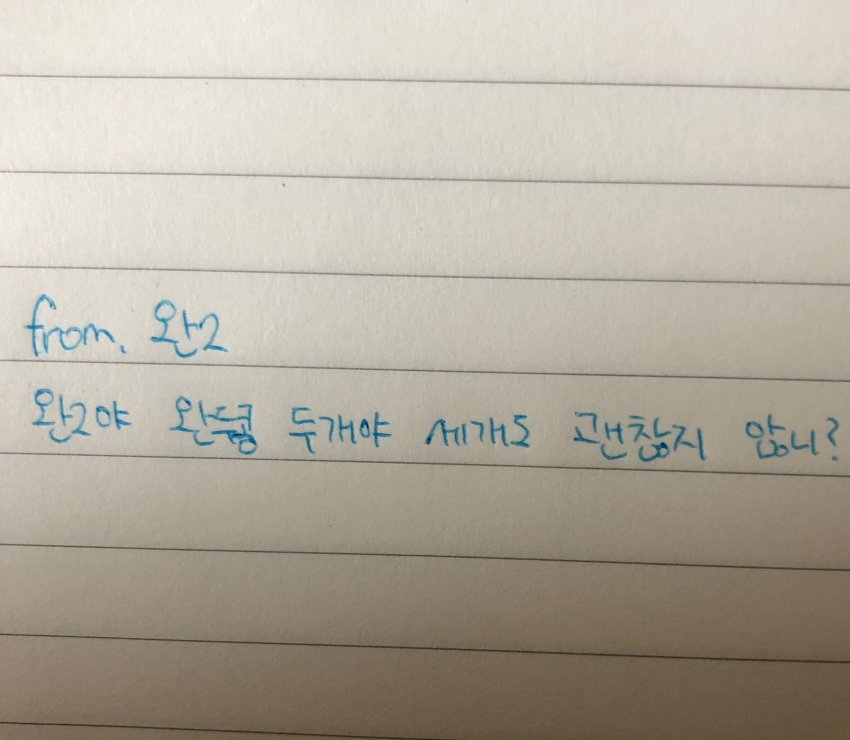 from. 완2
완2야 완두콩 두개야 세개도 괜찮지 않니?